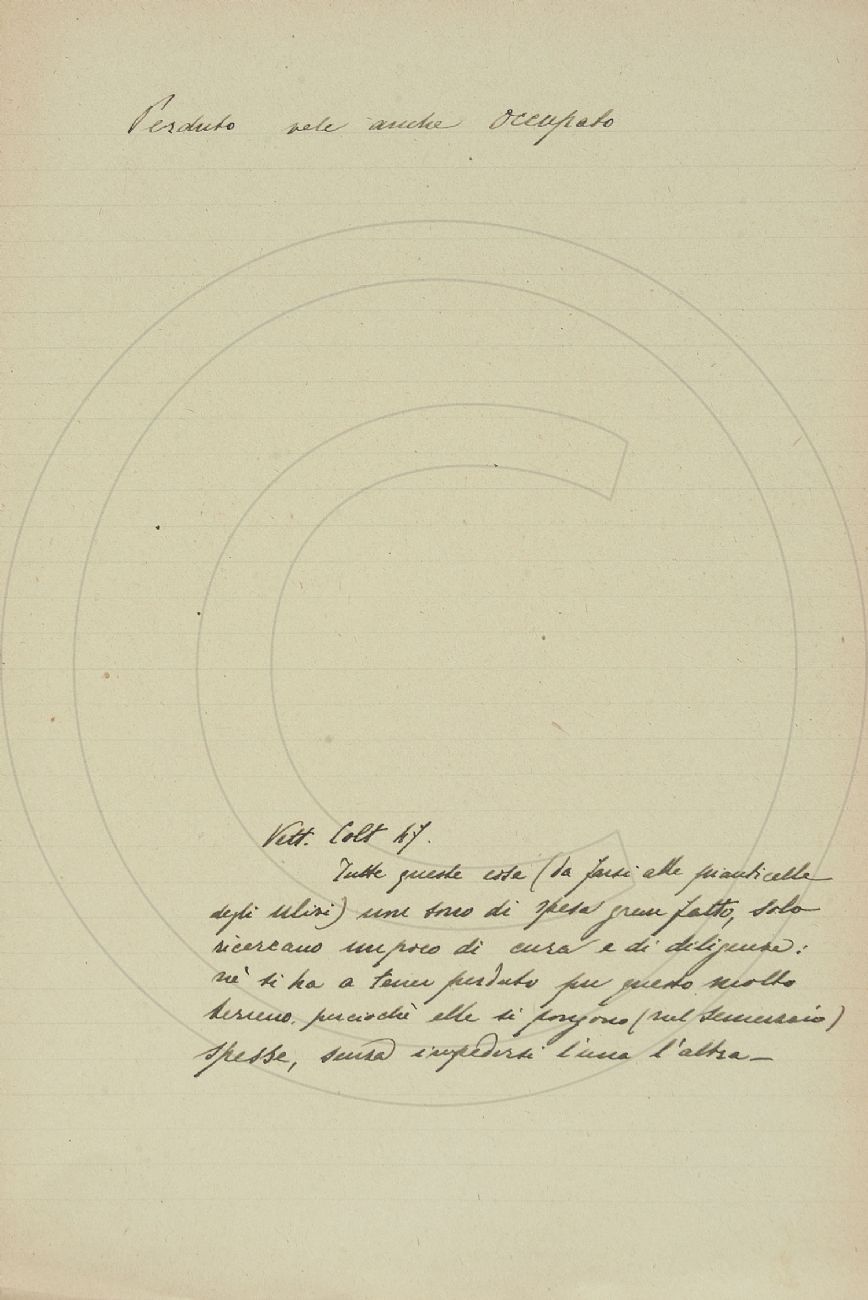 Perduto vale anche Occupato
Vett. Colt 47.
Tutte queste cose (da farsi alle pianticelle
degli ulivi) non sono di spesa gran fatto, solo
ricercano un poco di cura e di diligenza:
nè si ha a tener perduto per questo molto
terreno, perciochè elle si pongono (nel Semenzaio)
spesse, senza impedirsi l'una l'altra—